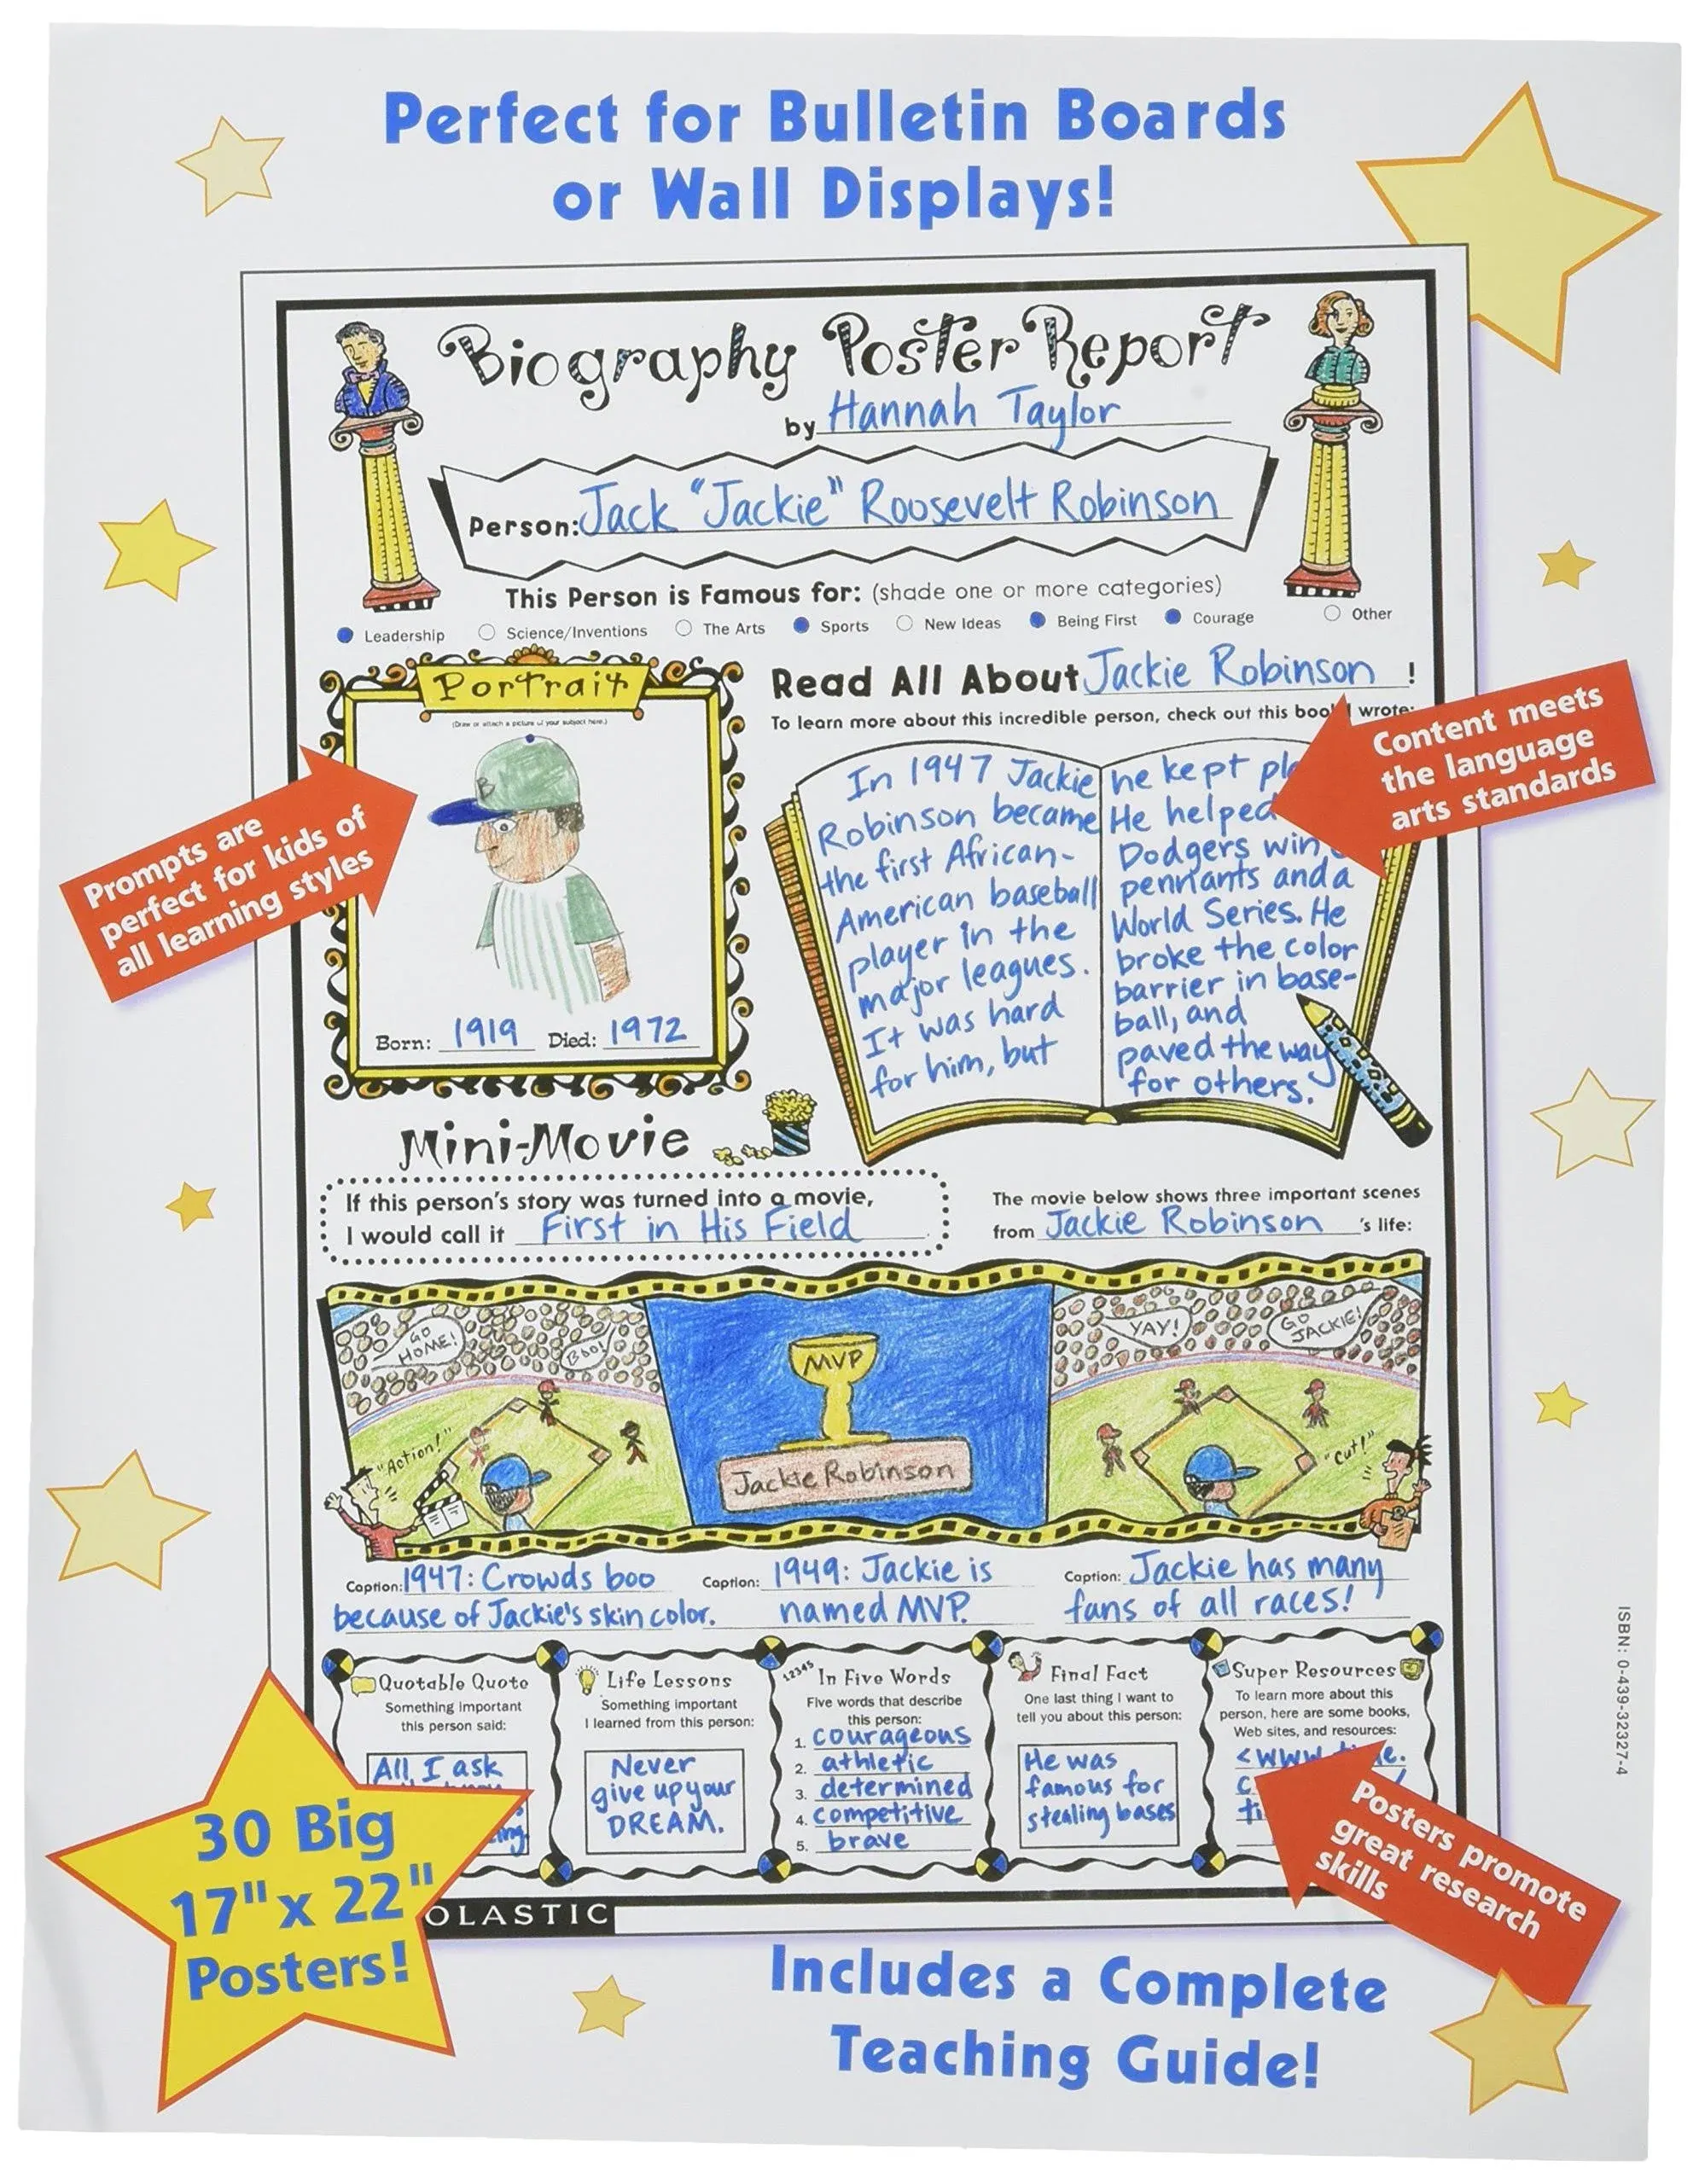 Perfect for Bulletin Boards
or Wall Displays!
Biography Poster Report
by Hannah Taylor
Person: Jack "Jackie" Roosevelt Robinson
This Person is Famous for: (shade one or more categories)
Leadership Science/Inventions The Arts Sports New Ideas Being First Courage Other
Portrait
(Draw or attach a picture of your subject here.)
Born: 1919 Died: 1972
Prompts are
perfect for kids of
all learning styles
Read All About Jackie Robinson !
To learn more about this incredible person, check out this book I wrote:
Content meets
the language
arts standards
In 1947 Jackie
Robinson became
the first African-
American baseball
player in the
major leagues.
It was hard
for him, but
he kept
He helped
Dodgers win
pennants and a
World Series. He
broke the color
barrier in base-
ball, and
paved the way
for others.
Mini-Movie
If this person's story was turned into a movie,
I would call it First in His Field
The movie below shows three important scenes
from Jackie Robinson 's life:
GO
HOME!
BOO!
"Action!"
MVP
Jackie Robinson
YAY!
GO
JACKIE!
"Cut!"
Caption: 1947: Crowds boo
because of Jackie's skin color.
Caption: 1949: Jackie is
named MVP.
Caption: Jackie has many
fans of all races!
Quotable Quote
Something important
this person said:
All I ask
Life Lessons
Something important
I learned from this person:
Never
give up your
DREAM.
12345
In Five Words
Five words that describe
this person:
1. courageous
2. athletic
3. determined
4. competitive
5. brave
Final Fact
One last thing I want to
tell you about this person:
He was
famous for
stealing bases
Super Resources
To learn more about this
person, here are some books,
Web sites, and resources:
Posters promote
great research
skills
30 Big
17" x 22"
Posters!
OLASTIC
Includes a Complete
Teaching Guide!
ISBN: 0-439-32327-4